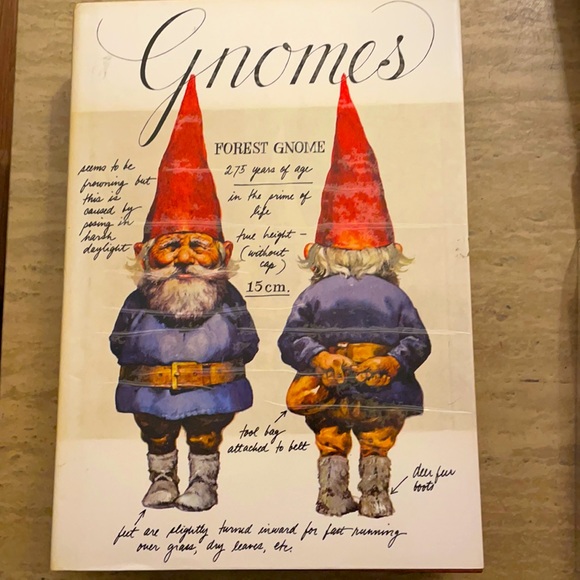 Gnomes
FOREST GNOME
275 years of age
in the prime of
life
true height –
(without
cap)
15 cm.
seems to be
frowning but
this is
caused by
posing in
harsh
daylight
tool bag
attached to belt
deer fur
boots
feet are slightly turned inward for fast running
over grass, dry leaves, etc.